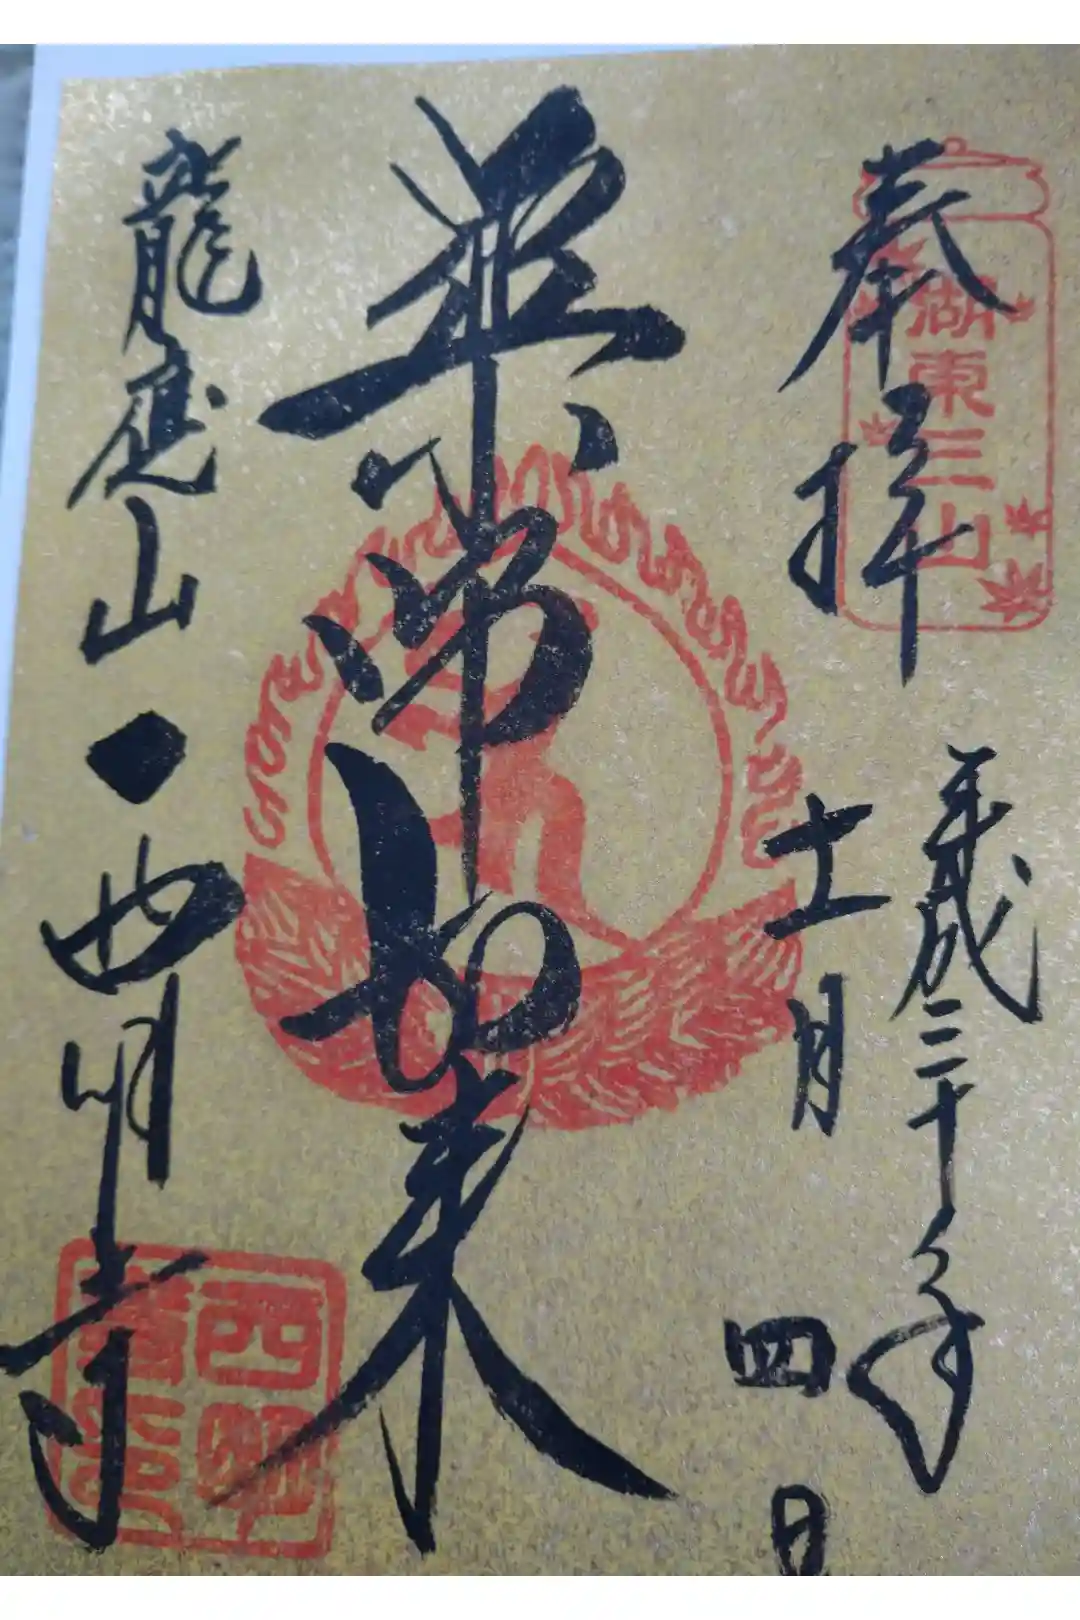 奉拝
湖東三山
平成三十年
十一月四日
薬師如来
龍應山・西明寺
西明